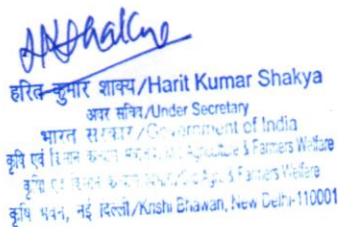 HKShakya
हरित कुमार शाक्य/Harit Kumar Shakya
अवर सचिव/Under Secretary
भारत सरकार/Government of India
कृषि एवं किसान कल्याण Agriculture & Farmers Welfare
कृषि एवं किसान Farmers Welfare
कृषि भवन, नई दिल्ली/Krishi Bhawan, New Delhi-110001